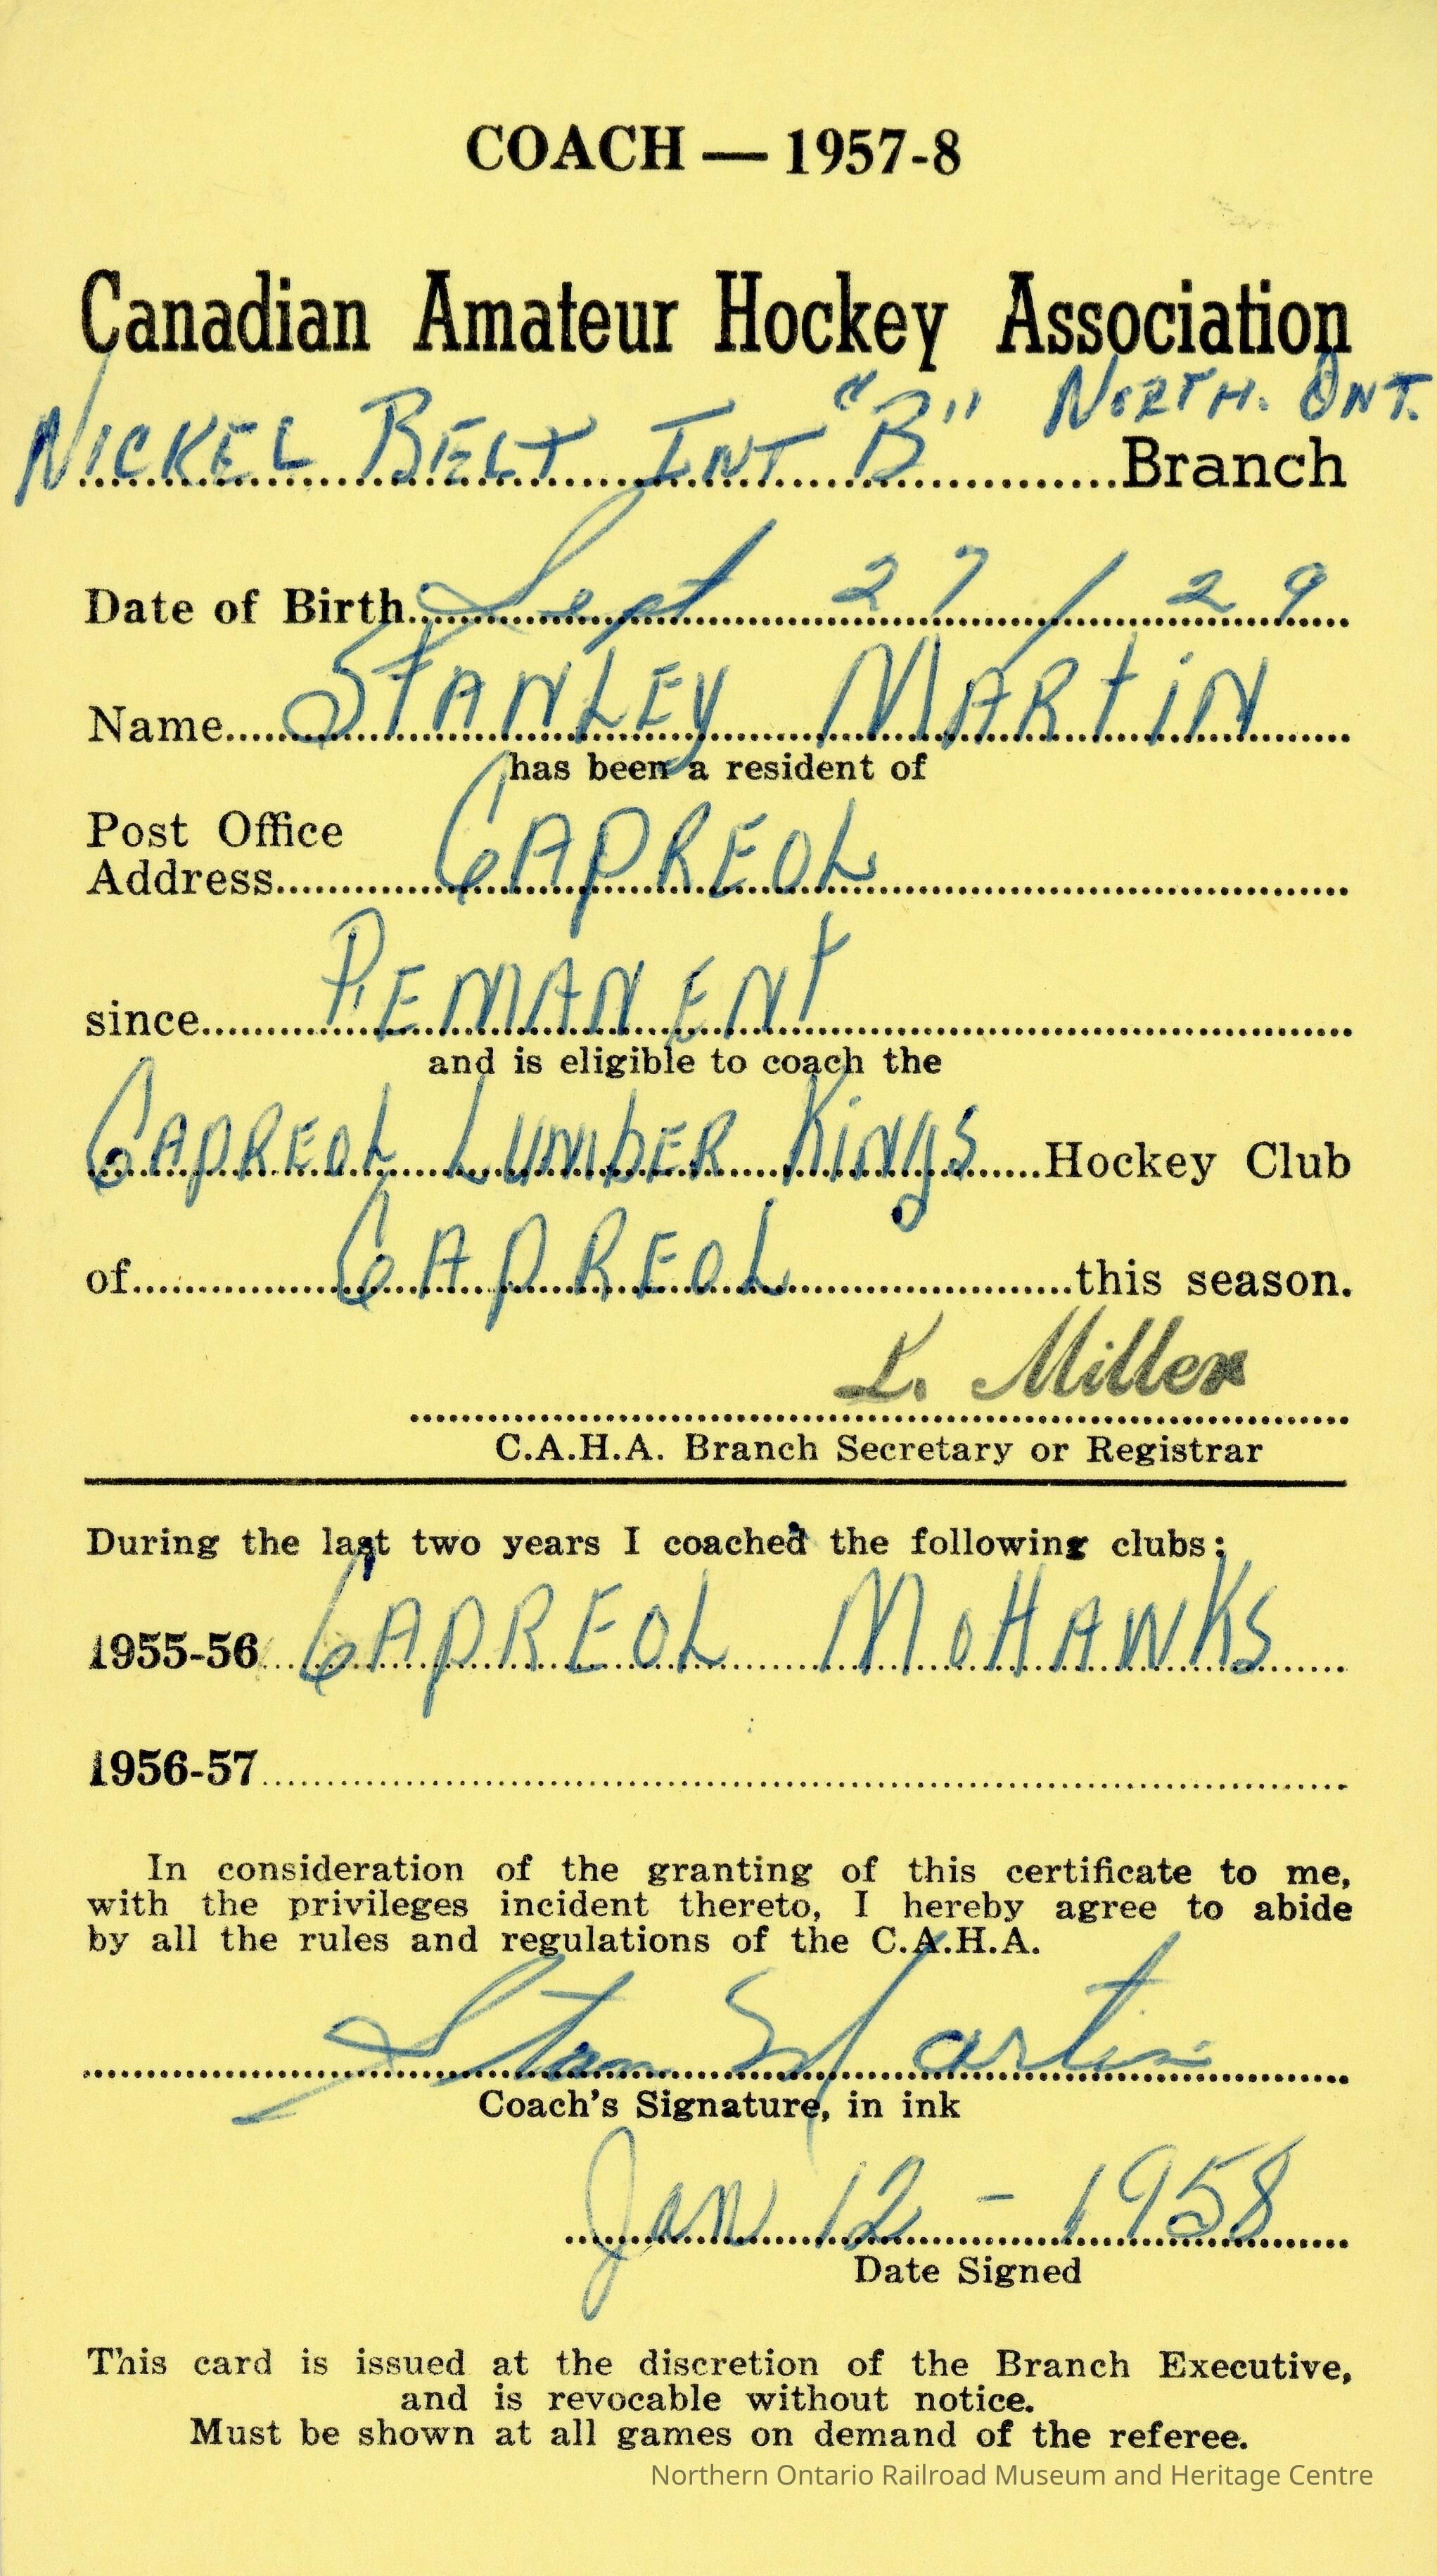 COACH — 1957-8
Canadian Amateur Hockey Association
NORTH. ONT.
NICKEL BELT INT "B" Branch
Date of Birth Sept 27 / 29
Name STANLEY MARTIN
has been a resident of
Post Office
Address CAPREOL
since PEMANENT
and is eligible to coach the
CAPREOL LUMBER KINGS Hockey Club
of CAPREOL this season.
L. Miller
C.A.H.A. Branch Secretary or Registrar
During the last two years I coached the following clubs:
1955-56 CAPREOL MOHAWKS
1956-57
In consideration of the granting of this certificate to me,
with the privileges incident thereto, I hereby agree to abide
by all the rules and regulations of the C.A.H.A.
Stan Martin
Coach's Signature, in ink
Jan 12 - 1958
Date Signed
This card is issued at the discretion of the Branch Executive,
and is revocable without notice.
Must be shown at all games on demand of the referee.
Northern Ontario Railroad Museum and Heritage Centre